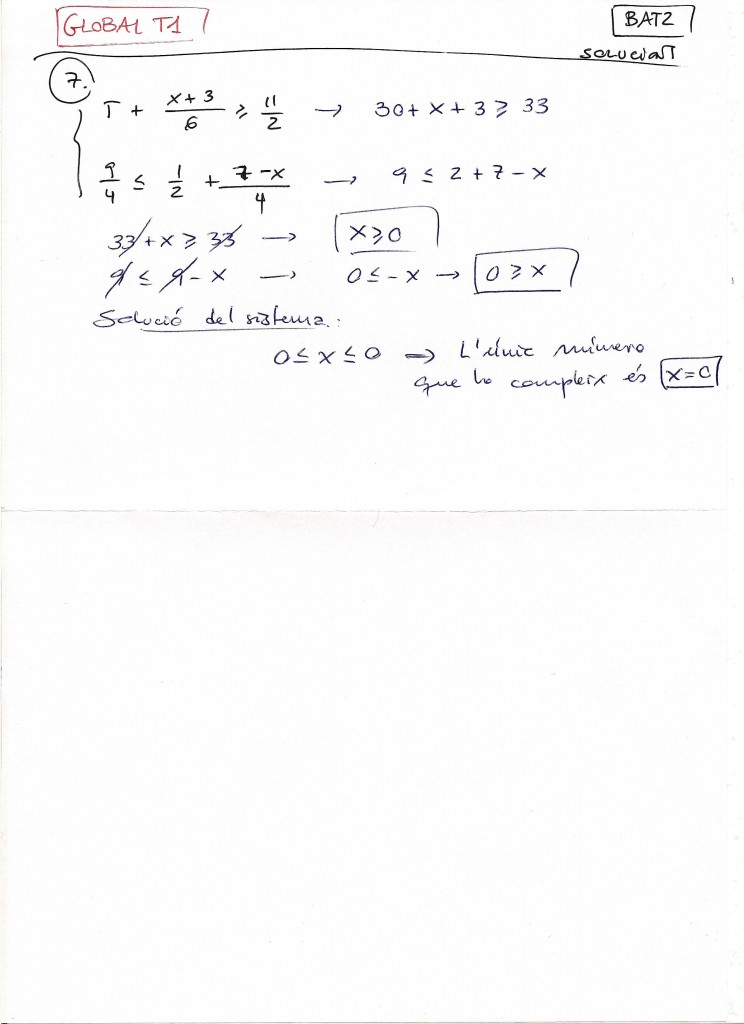 GLOBAL T1 BAT2
SOLUCIONS
7.
5 + (x+3)/6 ≥ 11/2 → 30 + x + 3 ≥ 33
9/4 ≤ 1/2 + (7-x)/4 → 9 ≤ 2 + 7 - x
33 + x ≥ 33 → x ≥ 0
9 ≤ 9 - x → 0 ≤ -x → 0 ≥ x
Solució del sistema:
0 ≤ x ≤ 0 → L'únic número
que ho compleix és x=0